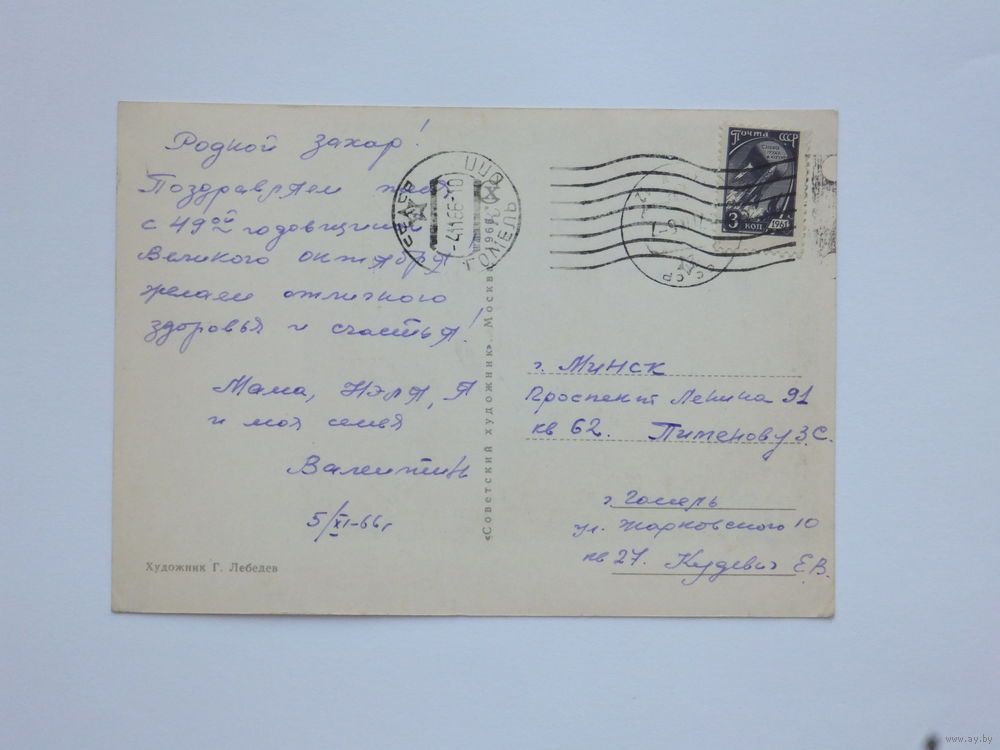 Родной Захар!
Поздравляем тебя
с 49ой годовщиной
Великого октября
желаем отличного
здоровья и счастья!
Мама, Нэля, Я
и моя семья
Валентин
5/XI-66г
Художник Г. Лебедев
«Советский художник». Москва 1966
Почта СССР
3 коп
1961
-41166-10
г. Минск
Проспект Ленина 91
кв 62. Пименову З.С.
г. Гомель
ул. Жарковского 10
кв 27. Кудевич Е.В.
www.ay.by